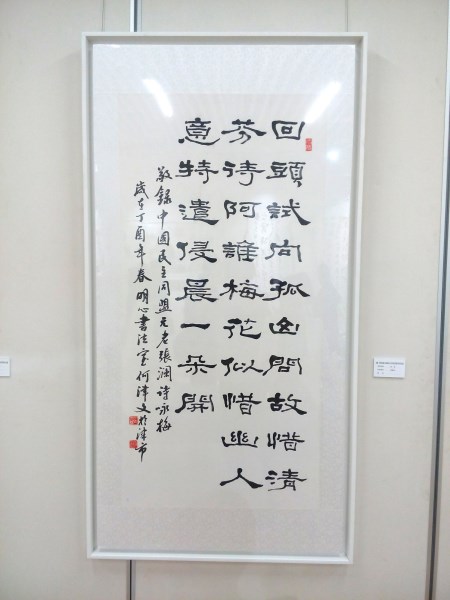 回頭試向孤山問故惜清
芬待阿誰梅花似惜幽人
意特遣侵晨一朵開
敬錄中國民主同盟元老張瀾詩詠梅
歲在丁酉年春明心書法室何津文於津市